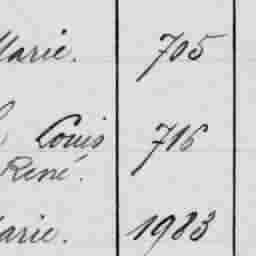 Marie. 705
Louis 716
René.
Marie. 1983